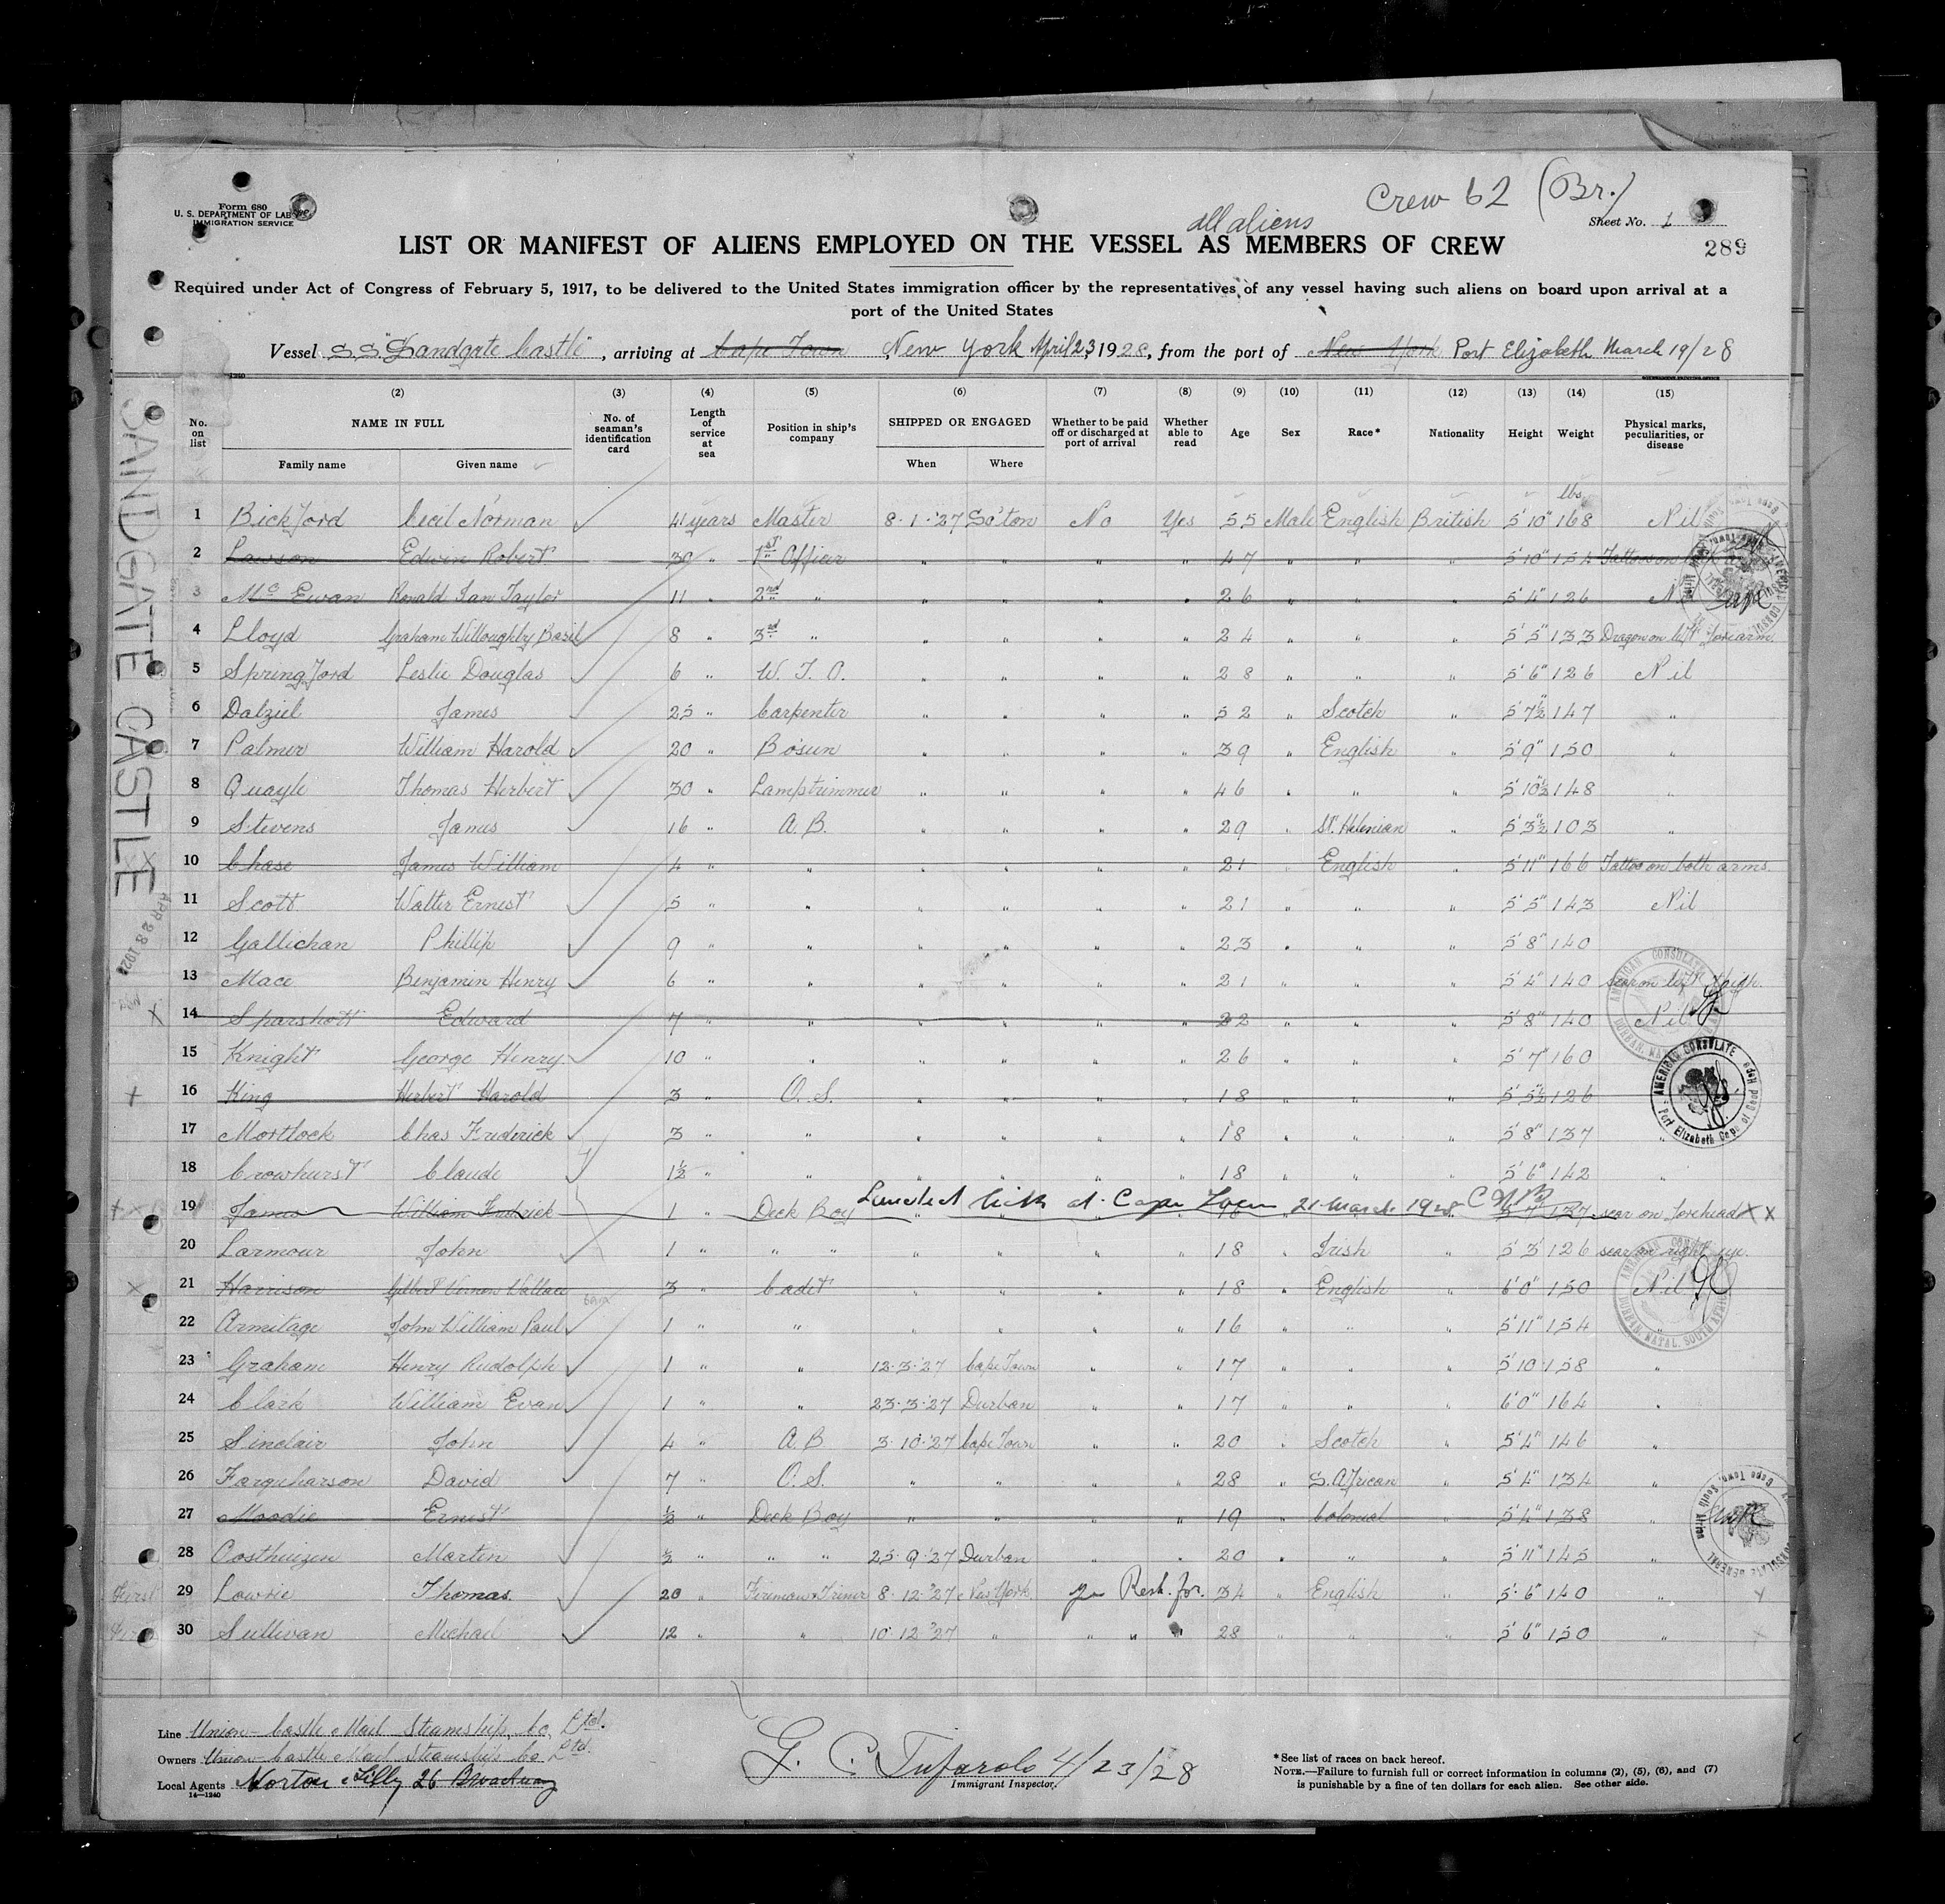 Crew 62 (Br.)
all aliens
Form 680
U. S. DEPARTMENT OF LABOR
IMMIGRATION SERVICE
Sheet No. 1
LIST OR MANIFEST OF ALIENS EMPLOYED ON THE VESSEL AS MEMBERS OF CREW
289
Required under Act of Congress of February 5, 1917, to be delivered to the United States immigration officer by the representatives of any vessel having such aliens on board upon arrival at a
port of the United States
Vessel S.S. "Sandgate Castle", arriving at Cape Town New York April 23, 1928, from the port of New York Port Elizabeth March 19/28
(2) (3) (4) (5) (6) (7) (8) (9) (10) (11) (12) (13) (14) (15)
No. on list NAME IN FULL No. of seaman's identification card Length of service at sea Position in ship's company SHIPPED OR ENGAGED Whether to be paid off or discharged at port of arrival Whether able to read Age Sex Race* Nationality Height Weight Physical marks, peculiarities, or disease
Family name Given name When Where
lbs
1 Bickford Cecil Norman 41 years Master 8.1.'27 So'ton No Yes 55 Male English British 5'10" 168 Nil
2 Lawson Edwin Robert 30 " 1st Officer " " " " 47 " " " 5'10" 154 Tattoo on
3 McEwan Ronald Ian Taylor 11 " 2nd " " " " " 26 " " " 5'4" 126 Nil
4 Lloyd Graham Willoughby Basil 8 " 3rd " " " " " 24 " " " 5'5" 133 Dragon on left forearm.
5 Springford Leslie Douglas 6 " W. T. O. " " " " 28 " " " 5'6" 126 Nil
6 Dalziel James 25 " Carpenter " " " " 52 " Scotch " 5'7½" 147 "
7 Palmer William Harold 20 " Bosun " " " " 39 " English " 5'9" 150 "
8 Quayle Thomas Herbert 30 " Lamptrimmer " " " " 46 " " " 5'10½" 148 "
9 Stevens James 16 " A. B. " " " " 29 " St. Helenian " 5'3½" 103 "
10 Chase James William 4 " " " " " " 21 " English " 5'11" 166 Tattoo on both arms.
11 Scott Walter Ernest 5 " " " " " " 21 " " " 5'5" 143 Nil
12 Gallichan Phillip 9 " " " " " " 23 " " " 5'8" 140
13 Mace Benjamin Henry 6 " " " " " " 21 " " " 5'4" 140 scar on left thigh.
14 Sparshott Edward 7 " " " " " " 22 " " " 5'8" 140 Nil
15 Knight George Henry. 10 " " " " " " 26 " " " 5'7" 160
16 King Herbert Harold 3 " O. S. " " " " 18 " " " 5'5½" 126
17 Mortlock Chas Frederick 3 " " " " " " 18 " " " 5'8" 137 "
18 Crowhurst Claude 1½ " " " " " " 18 " " " 5'6" 142
19 James William Fredrick 1 Deck Boy Landed sick at Cape Town 21 March 1928 CNB 5'7" 137 scar on forehead X X
20 Larmour John 1 " " " " " " " 18 " Irish " 5'3" 126 scar on right eye.
21 Harrison Gilbert Vernon Wallace 3 " Cadet " " " " 18 " English " 6'0" 150 Nil
22 Armitage John William Paul 1 " " " " " " 16 " " " 5'11" 154 "
23 Graham Henry Rudolph 1 " " 12.3.'27 Cape Town " " 17 " " " 5'10 158 "
24 Clark William Evan 1 " " 23.3.'27 Durban " " 17 " " " 6'0" 164 "
25 Sinclair John 4 " A. B. 3.10.'27 Cape Town " " 20 " Scotch " 5'4" 146 "
26 Farquharson David 7 " O. S. " " " " 28 " S. African " 5'4" 134 "
27 Moodie Ernest ½ " Deck Boy " " " " 19 " Colonial " 5'4" 138 "
28 Oosthuizen Martin ½ " " " 25.9.'27 Durban " " 20 " " " 5'11" 145 "
29 Lowrie Thomas. 20 " Fireman & Trimer 8.12.'27 New York Resh. for. 34 " English " 5'6" 140 "
30 Sullivan Michael 12 " " 10.12.'27 " " " " 28 " " " 5'6" 150 "
SANDGATE CASTLE
APR 23 1928
First
AMERICAN CONSULATE DURBAN, NATAL, SOUTH AFRICA
AMERICAN CONSULATE Port Elizabeth Cape of Good Hope
Line Union-Castle Mail Steamship, Co, Ltd.
Owners Union-Castle Mail Steamship Co Ltd.
Local Agents Norton Lilly 26 Broadway
14—1240
G. C. Tufarolo 4/23/28
Immigrant Inspector.
*See list of races on back hereof.
NOTE.—Failure to furnish full or correct information in columns (2), (5), (6), and (7)
is punishable by a fine of ten dollars for each alien. See other side.